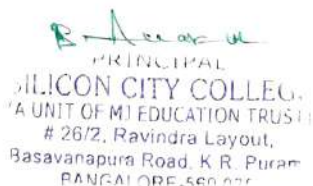 PRINCIPAL
SILICON CITY COLLEG
(A UNIT OF MJ EDUCATION TRUST
# 26/2, Ravindra Layout,
Basavanapura Road, K R. Puram
BANGALORE-560